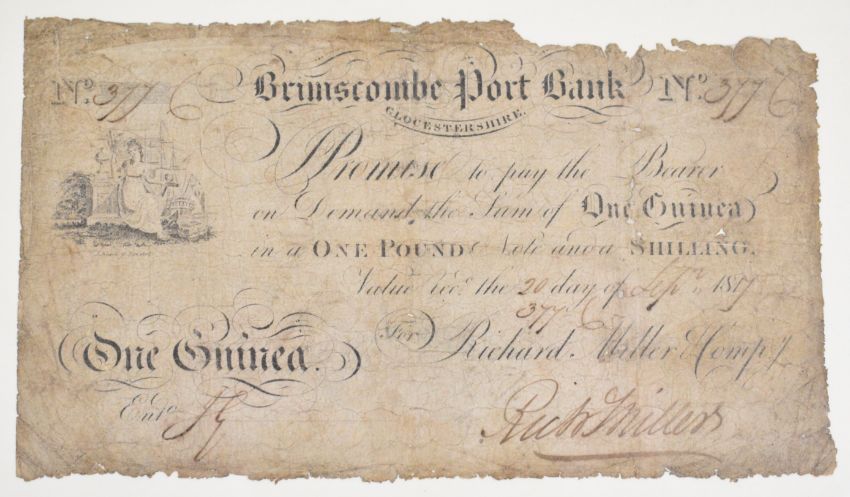 No. 377 Brimscombe Port Bank No. 377
GLOCESTERSHIRE.
I Promise to pay the Bearer
on Demand the Sum of One Guinea
in a ONE POUND Note and a SHILLING,
Value recd. the 20 day of Sepr. 1817
377
One Guinea. For Richard. Miller & Compy
Entd.
Richd Miller